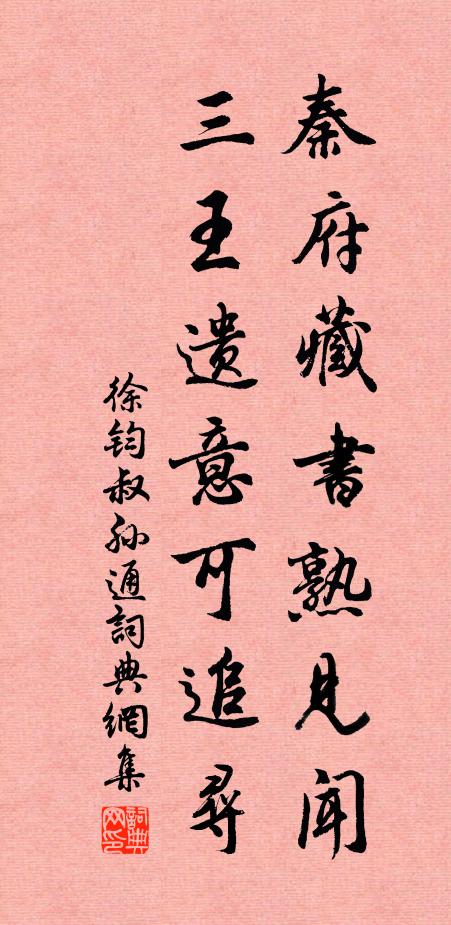 秦府藏書熟見聞
三王遗意可追尋
徐鈞叔孙通詞典網集
詞典网印